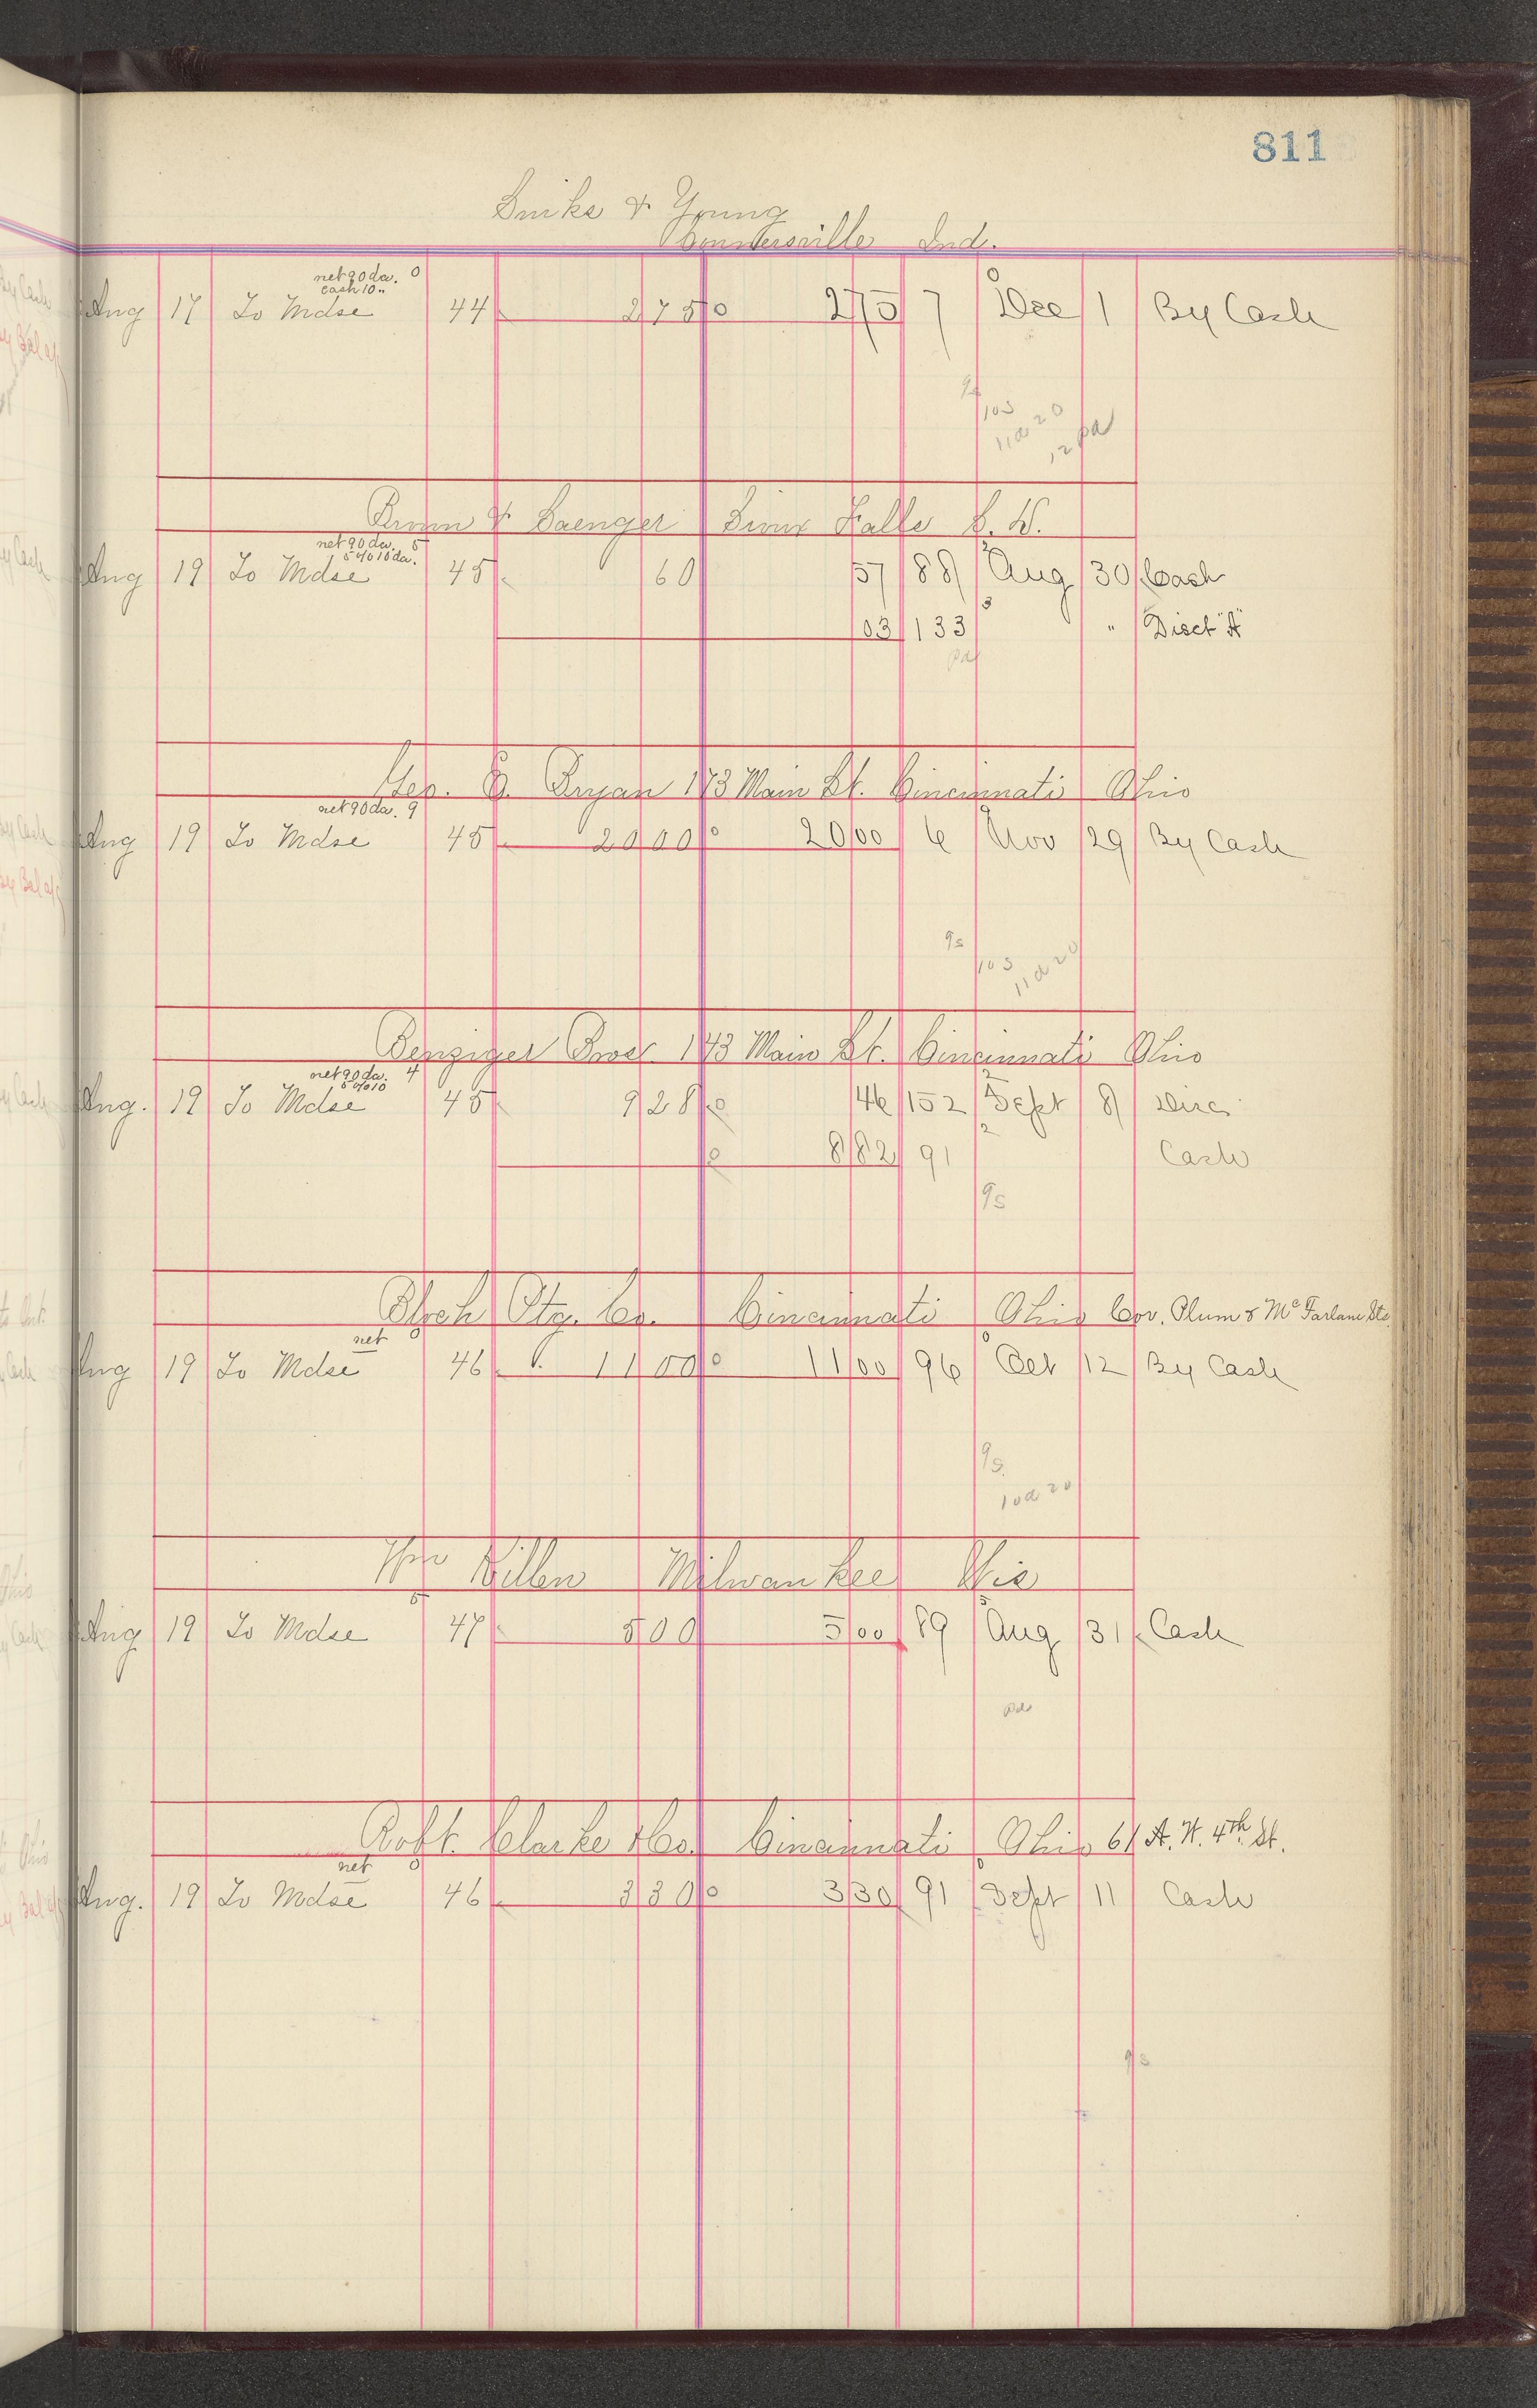 811
& Young
Connersville Ind.
net 90 da. 0
cash 10 "
Aug 17 To Mdse 44 2 75 0 2 75 7 0 Dec 1 By Cash
9s
10s
11d20
12 pd
Brown & Saenger Sioux Falls S. D.
net 90 da. 5
5%10da.
Aug 19 To Mdse 45 60 57 88 2 Aug 30 Cash
03 133 3 " Disct "A"
pd
Geo. B. Bryan 173 Main St. Cincinnati Ohio
net 90 da. 9
Aug 19 To Mdse 45 20 00 0 20 00 6 Nov 29 By Cash
9s
10s
11d20
Benziger Bros 143 Main St. Cincinnati Ohio
net 90 da. 4
5%10
Aug. 19 To Mdse 45 9 28 0 46 152 2 Sept 8 Disc
0 8 82 91 2 Cash
9s
Ptg. Co. Cincinnati Ohio Cor. Plum & McFarlane Sts.
net 0
Aug 19 To Mdse 46 11 00 0 11 00 96 0 Oct 12 By Cash
9s
10d20
Wm Killen Milwaukee Wis
5
Aug 19 To Mdse 47 5 00 5 00 89 5 Aug 31 Cash
pd
Robt. Clarke & Co. Cincinnati Ohio 61 A. W. 4th St.
net 0
Aug. 19 To Mdse 46 3 30 0 3 30 91 0 Sept 11 Cash
9s